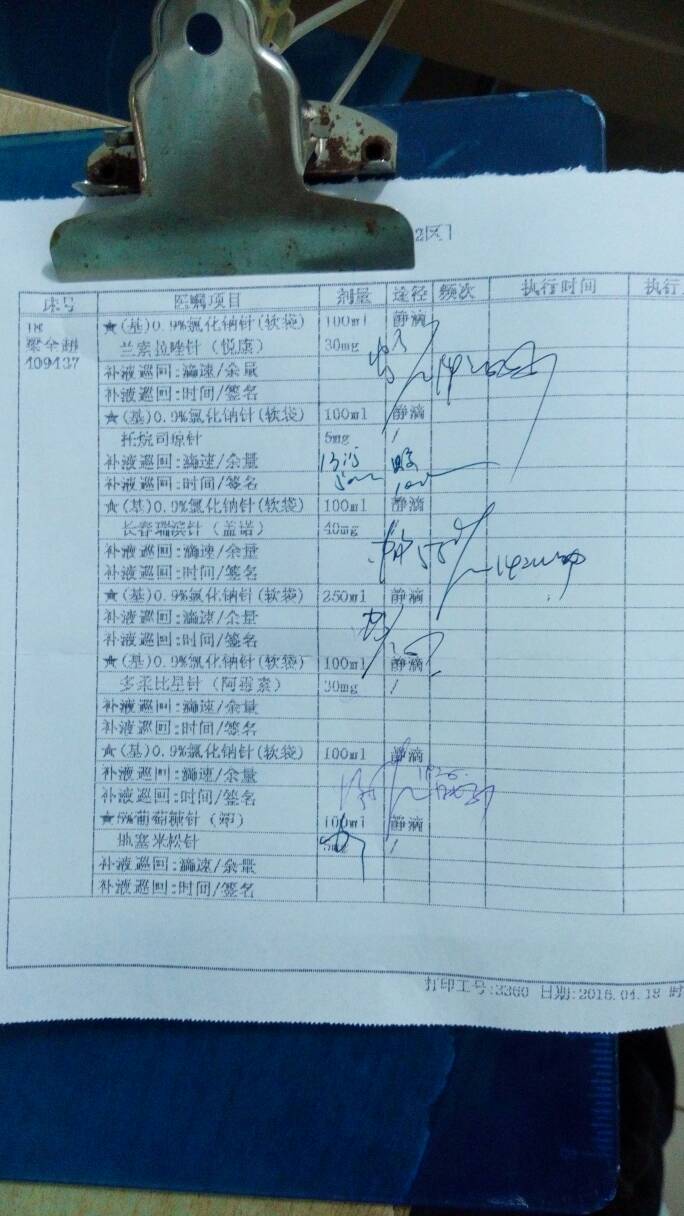 2区
床号 医嘱项目 剂量 途径 频次 执行时间 执行
18 ★(基)0.9%氯化钠针(软袋) 100ml 静滴
兰索拉唑针(悦康) 30mg
409437
补液巡回:滴速/余量
补液巡回:时间/签名
★(基)0.9%氯化钠针(软袋) 100ml 静滴
托烷司琼针 5mg /
补液巡回:滴速/余量
补液巡回:时间/签名
★(基)0.9%氯化钠针(软袋) 100ml 静滴
长春瑞滨针(盖诺) 40mg
补液巡回:滴速/余量
补液巡回:时间/签名
★(基)0.9%氯化钠针(软袋) 250ml 静滴
补液巡回:滴速/余量
补液巡回:时间/签名
★(基)0.9%氯化钠针(软袋) 100ml 静滴
多柔比星针(阿霉素) 30mg /
补液巡回:滴速/余量
补液巡回:时间/签名
★(基)0.9%氯化钠针(软袋) 100ml 静滴
补液巡回:滴速/余量
补液巡回:时间/签名
★5%葡萄糖针 100ml 静滴
地塞米松针 5mg /
补液巡回:滴速/余量
补液巡回:时间/签名
打印工号:3360 日期:2016.04.18 时